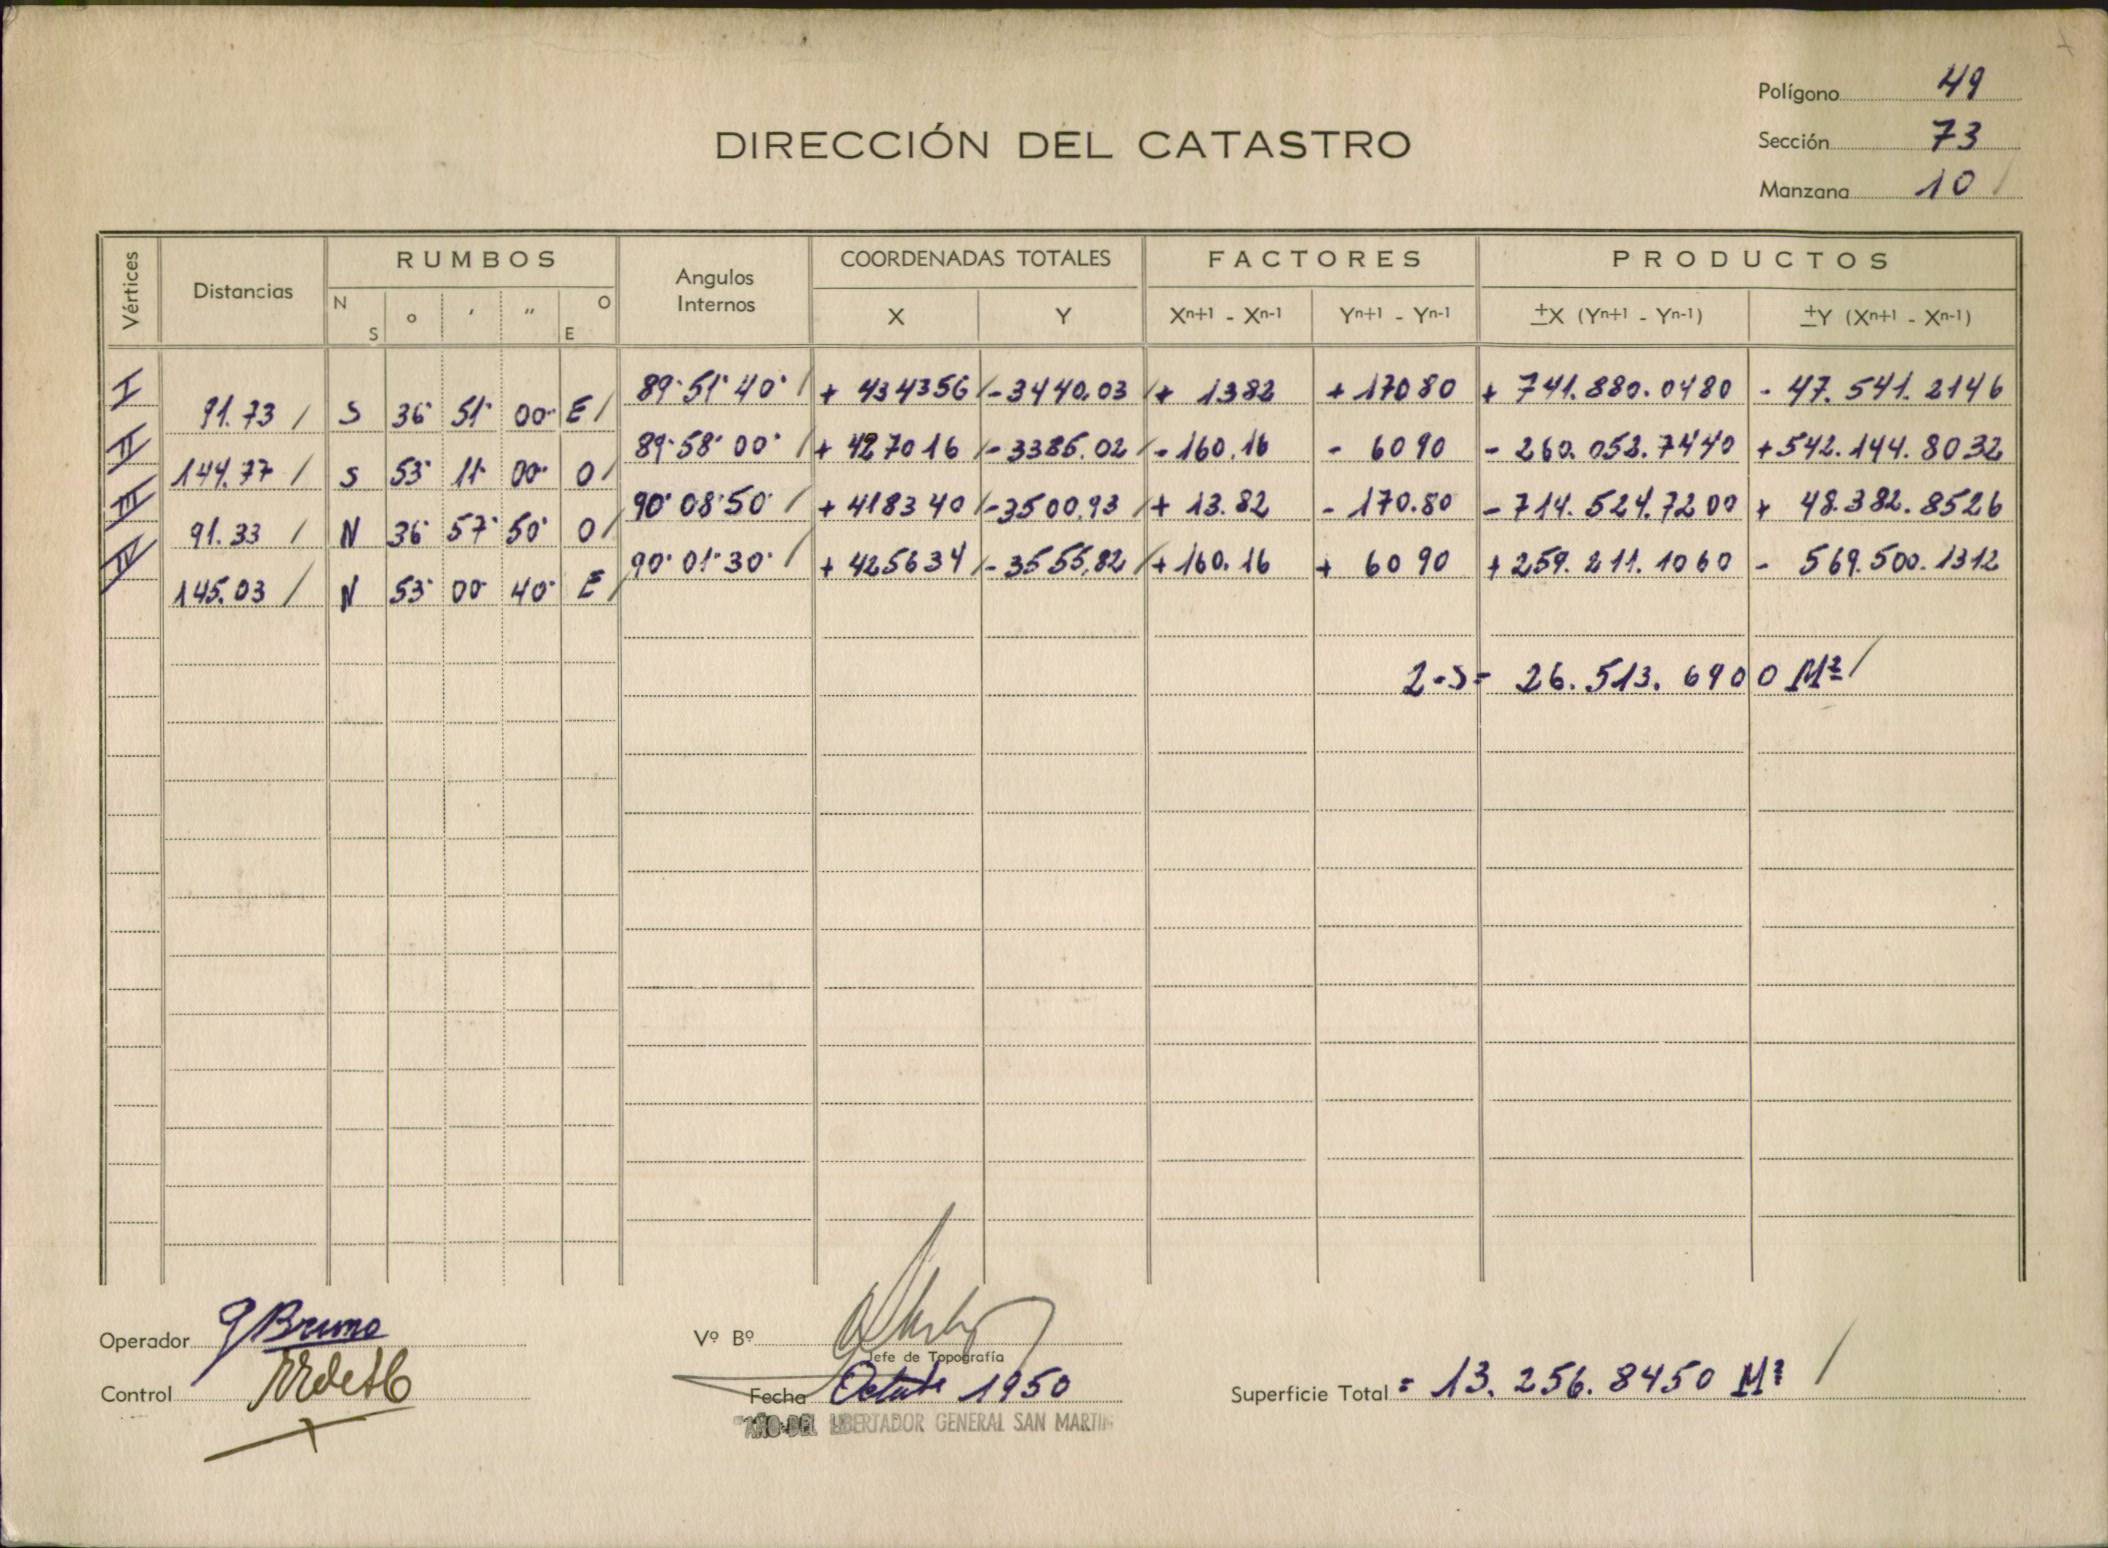 Polígono 49
DIRECCIÓN DEL CATASTRO
Sección 73
Manzana 10 /
Vértices Distancias RUMBOS Angulos Internos COORDENADAS TOTALES FACTORES PRODUCTOS
N S ° ′ ″ O E X Y Xn+1 - Xn-1 Yn+1 - Yn-1 ±X (Yn+1 - Yn-1) ±Y (Xn+1 - Xn-1)
I 89° 51' 40" / + 434356 / - 3440.03 / + 1382 + 17080 + 741.880.0480 - 47.541.2146
91.73 / S 36° 51' 00" E /
II 89° 58' 00" / + 427016 / - 3385.02 / - 160.16 - 6090 - 260.052.7440 + 542.144.8032
144.77 / S 53° 11' 00" O /
III 90° 08' 50" / + 418340 / - 3500.93 / + 13.82 - 170.80 - 714.524.7200 + 48.382.8526
91.33 / N 36° 57' 50" O /
IV 90° 01' 30" / + 425634 / - 3555.82 / + 160.16 + 6090 + 259.211.1060 - 569.500.1312
145.03 / N 53° 00' 40" E /
2·S = 26.513.6900 M² /
Operador G Bruno
Vº Bº
Jefe de Topografía
Control
Fecha Octubre 1950
Superficie Total = 13.256.8450 M² /
"AÑO DEL LIBERTADOR GENERAL SAN MARTIN